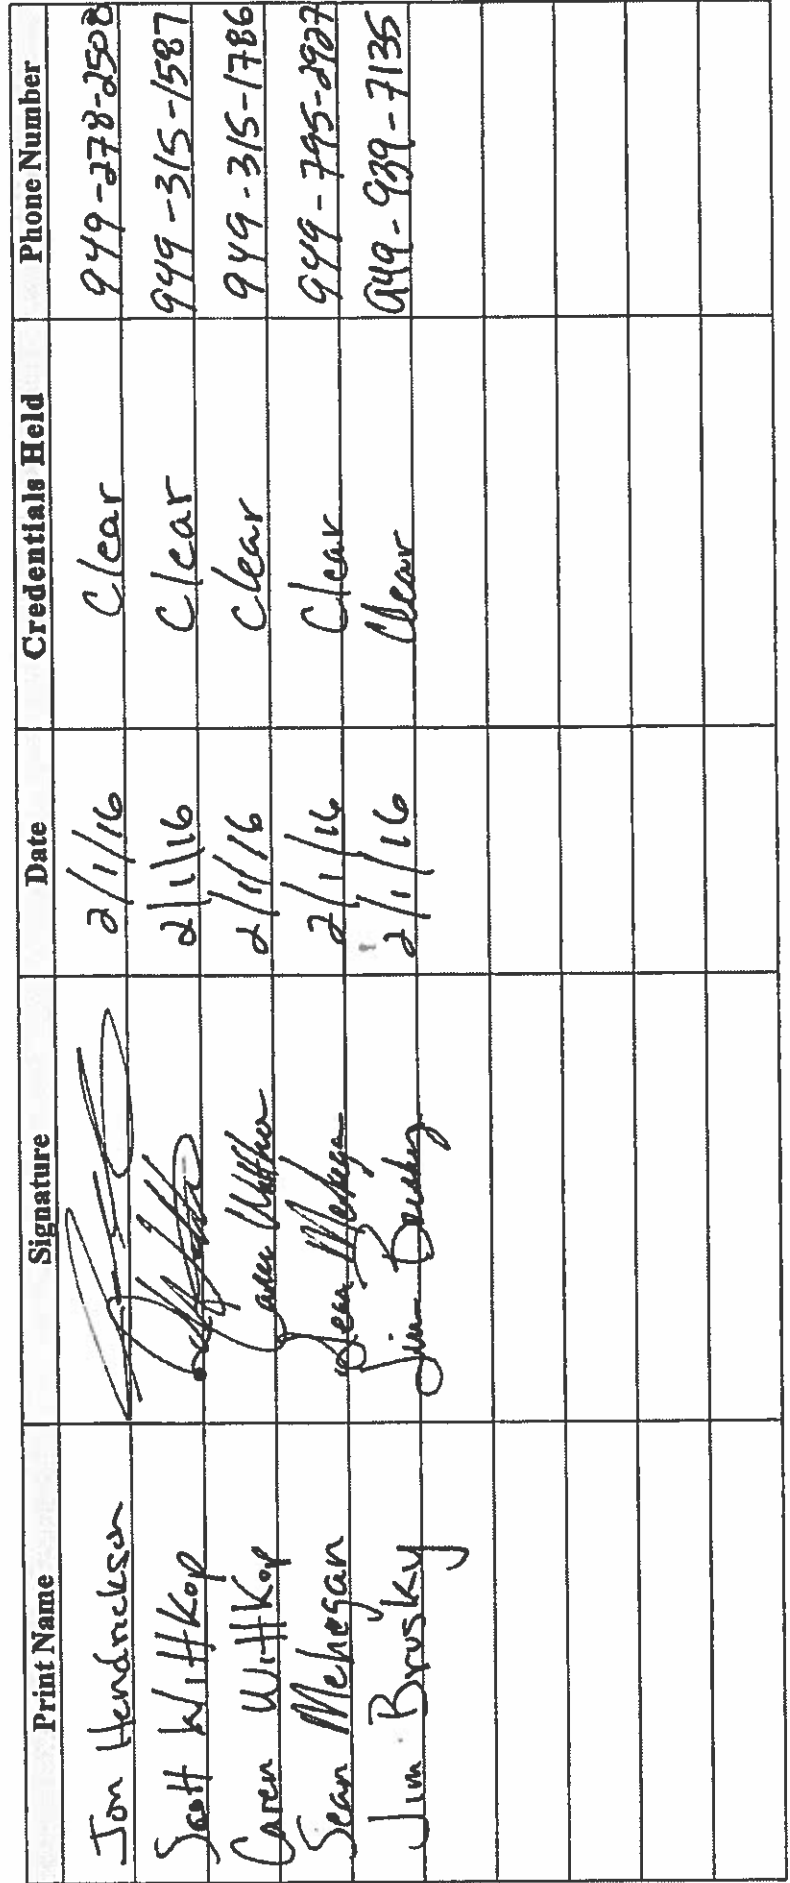 Print Name Signature Date Credentials Held Phone Number
Jon Hendrickson 2/1/16 Clear 949-278-2508
Scott Wittkop 2/1/16 Clear 949-315-1587
Caren Wittkop Caren Wittkop 2/1/16 Clear 949-315-1786
Sean Mehegan Sean Mehegan 2/1/16 Clear 949-795-2927
Jim Brusky Jim Brusky 2/1/16 Clear 949-939-7135